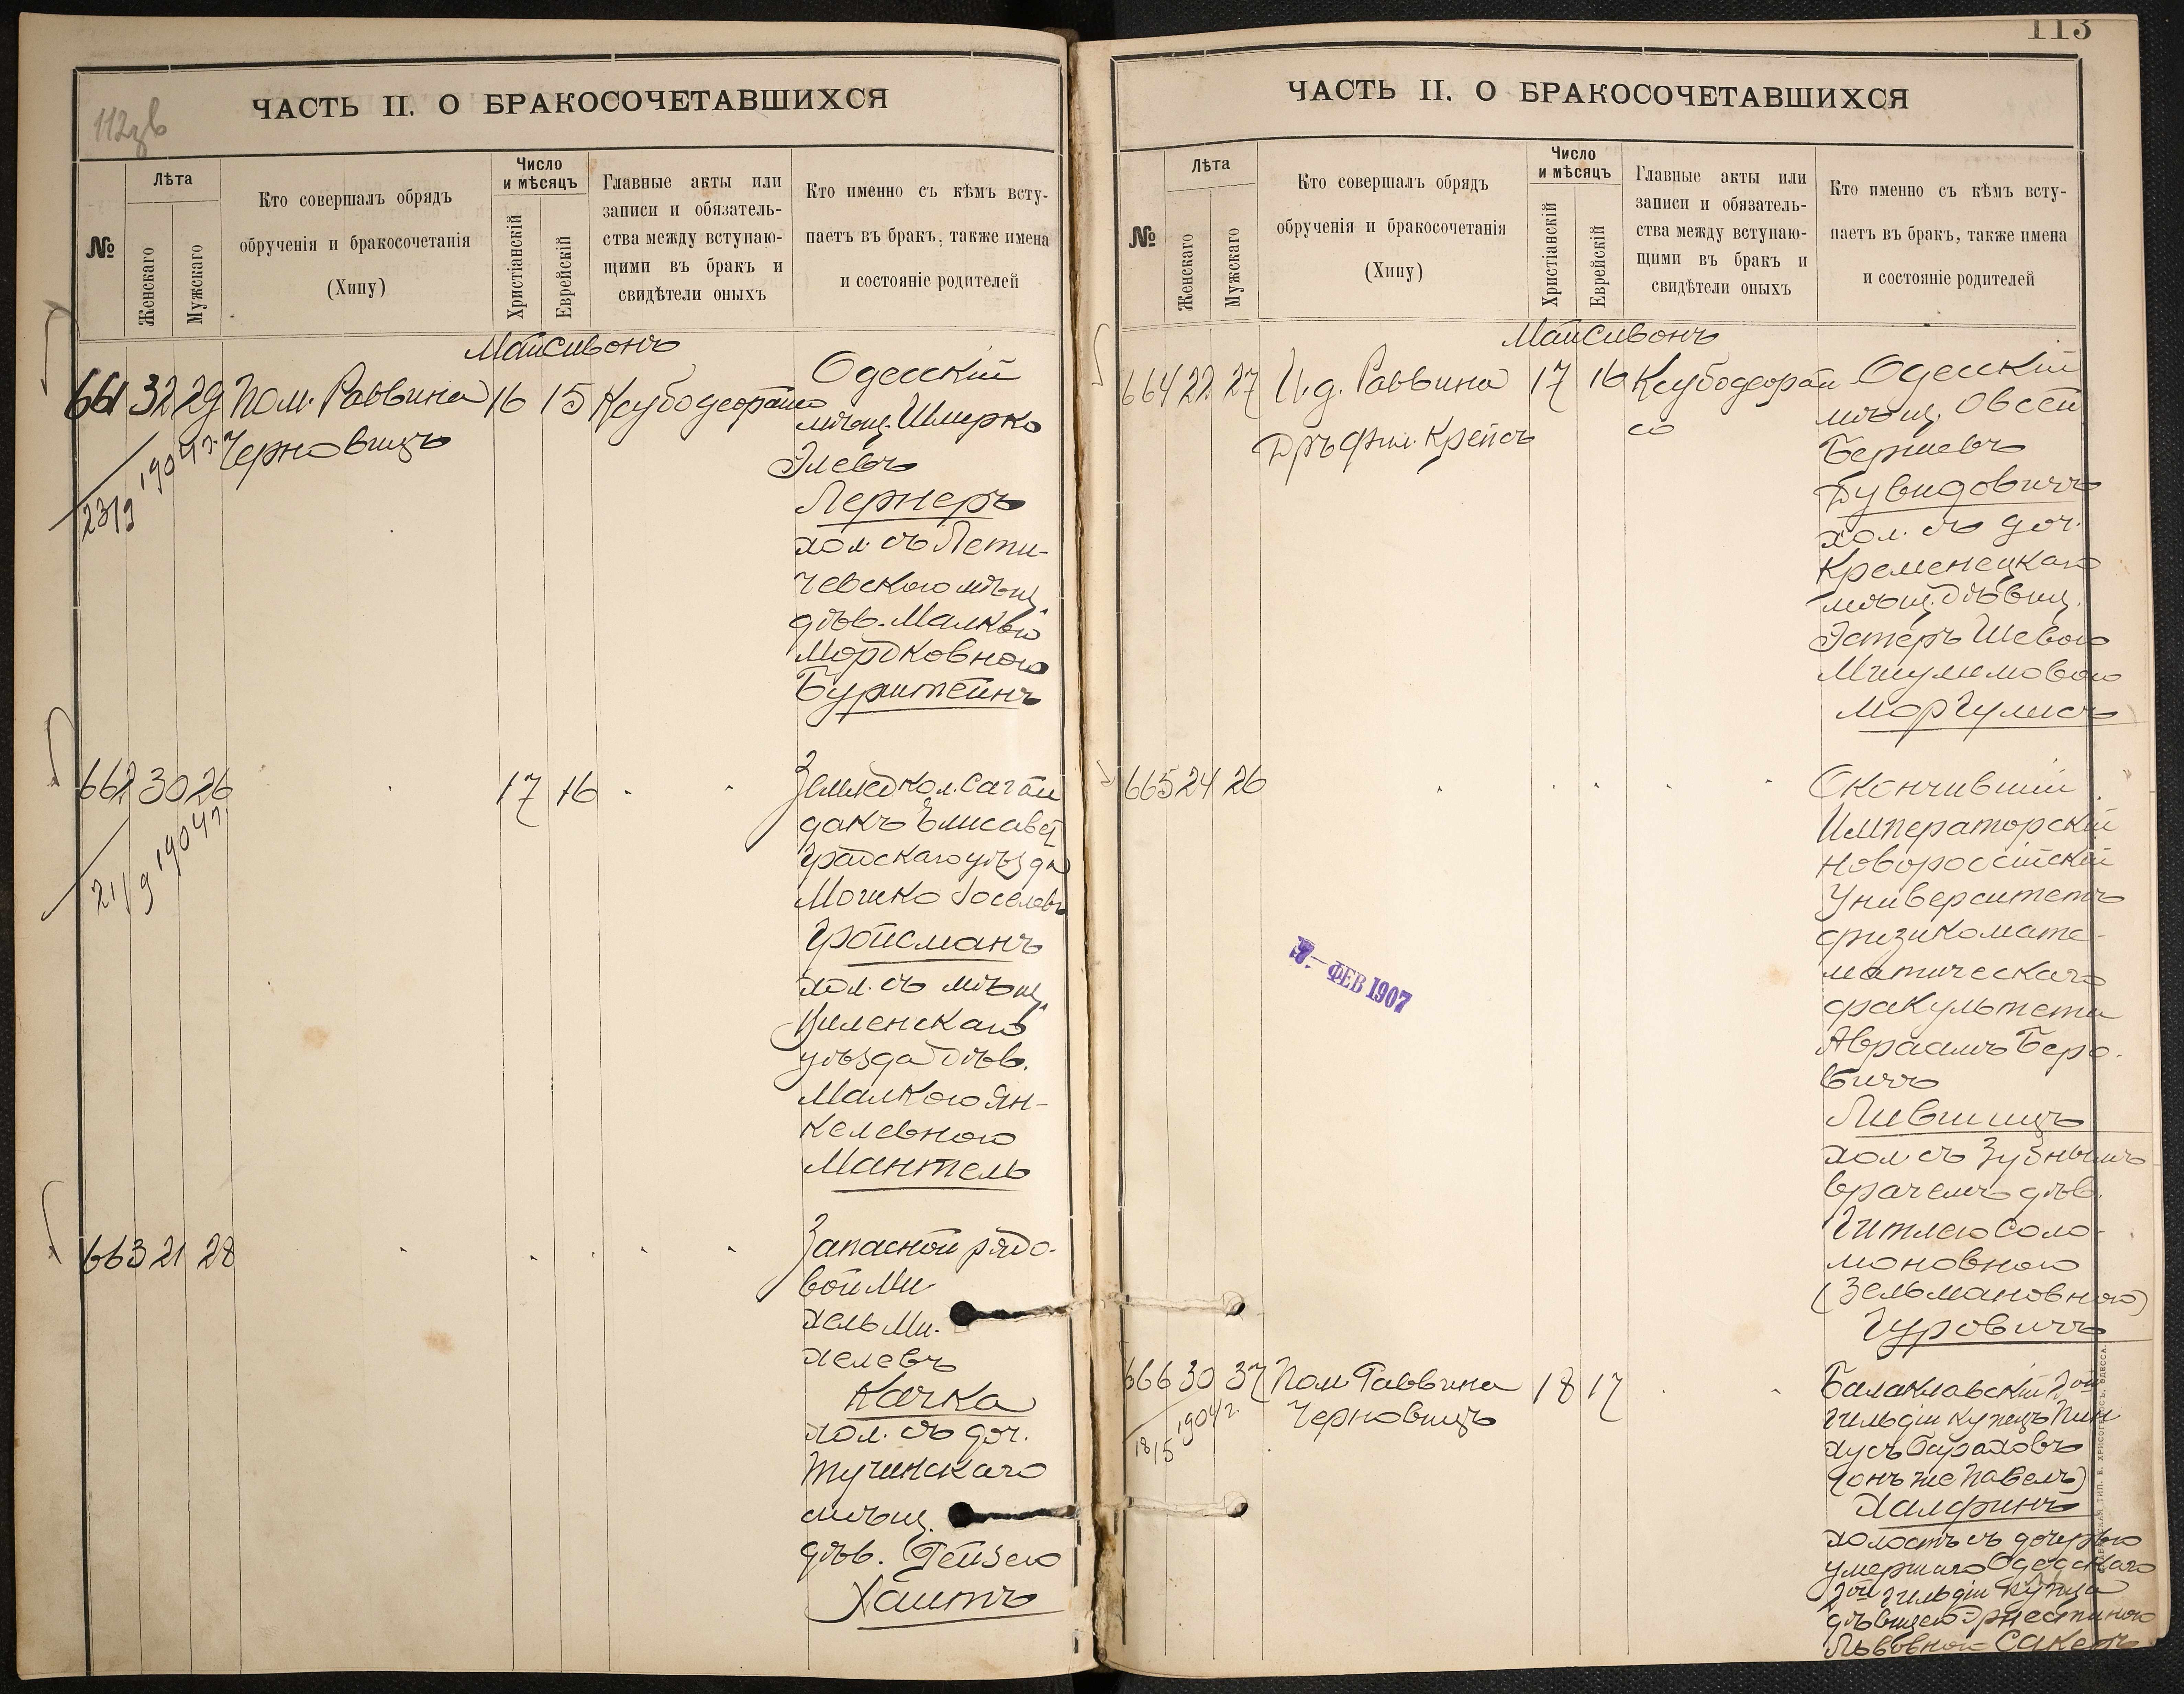 112зв
ЧАСТЬ II. О БРАКОСОЧЕТАВШИХСЯ
№
Лѣта
Женскаго
Мужскаго
Кто совершалъ обрядъ
обрученія и бракосочетанія
(Хипу)
Число
и мѣсяцъ
Христіанскій
Еврейскій
Главные акты или
записи и обязатель-
ства между вступаю-
щими въ бракъ и
свидѣтели оныхъ
Кто именно съ кѣмъ всту-
паетъ въ бракъ, также имена
и состояніе родителей
Май Сивонъ
661 32 29 Пом. Раввина 16 15
Черновицъ
23/9 1904 г.
Одесскій
мѣщ. Шмерко
Элевъ
Лернеръ
хол. съ Лети-
чевского мѣщ.
дѣв. Малкой
Мордковною
Бурштейнъ
662 30 26 17 16
21/9 1904 г.
Землед. кол. Сагай
дакъ Елисавет
градскаго уѣзда
Мошко Іоселевъ
Гройсманъ
хол. съ мѣщ.
Виленскаго
уѣзда дѣв.
Малкою Ян-
келевною
Мантель
663 21 28
Запасной рядо-
вой Ми-
хель Ми-
хелевъ
Качка
хол. съ доч.
Тучинскаго
мѣщ.
дѣв. Рейзею
Хаитъ
113
ЧАСТЬ II. О БРАКОСОЧЕТАВШИХСЯ
№
Лѣта
Женскаго
Мужскаго
Кто совершалъ обрядъ
обрученія и бракосочетанія
(Хипу)
Число
и мѣсяцъ
Христіанскій
Еврейскій
Главные акты или
записи и обязатель-
ства между вступаю-
щими въ бракъ и
свидѣтели оныхъ
Кто именно съ кѣмъ всту-
паетъ въ бракъ, также имена
и состояніе родителей
Май Сивонъ
664 22 27 И.д. Раввина 17 16
Дръ фил. Крепсъ
Одесскій
мѣщ. Овсей
Берковъ
Дувидовичъ
хол. съ доч.
Кременецкаго
мѣщ. дѣвиц.
Эстеръ Шевою
Мшулимовою
Моргулисъ
665 24 26
Окончившій
Императорскій
Новороссійскій
Университетъ
физикомате-
матическаго
факультета
Авраамъ Беро-
вичъ
Лившицъ
хол. съ зубнымъ
врачемъ дѣв.
Гитлею Соло-
моновною
(Зельмановною)
Гуровичъ
ФЕВ 1907
666 30 37 Пом Раввина 18 17
Черновицъ
18/5 1904 г.
Балаклавскій 2ой
гильдіи купецъ Пин
хусъ Бараховъ
(онъ же Павелъ)
Халфинъ
холостъ съ дочерью
умершаго Одесскаго
2ой гильдіи купца
дѣвицею Эрнестиною
Львовною Сакеръ